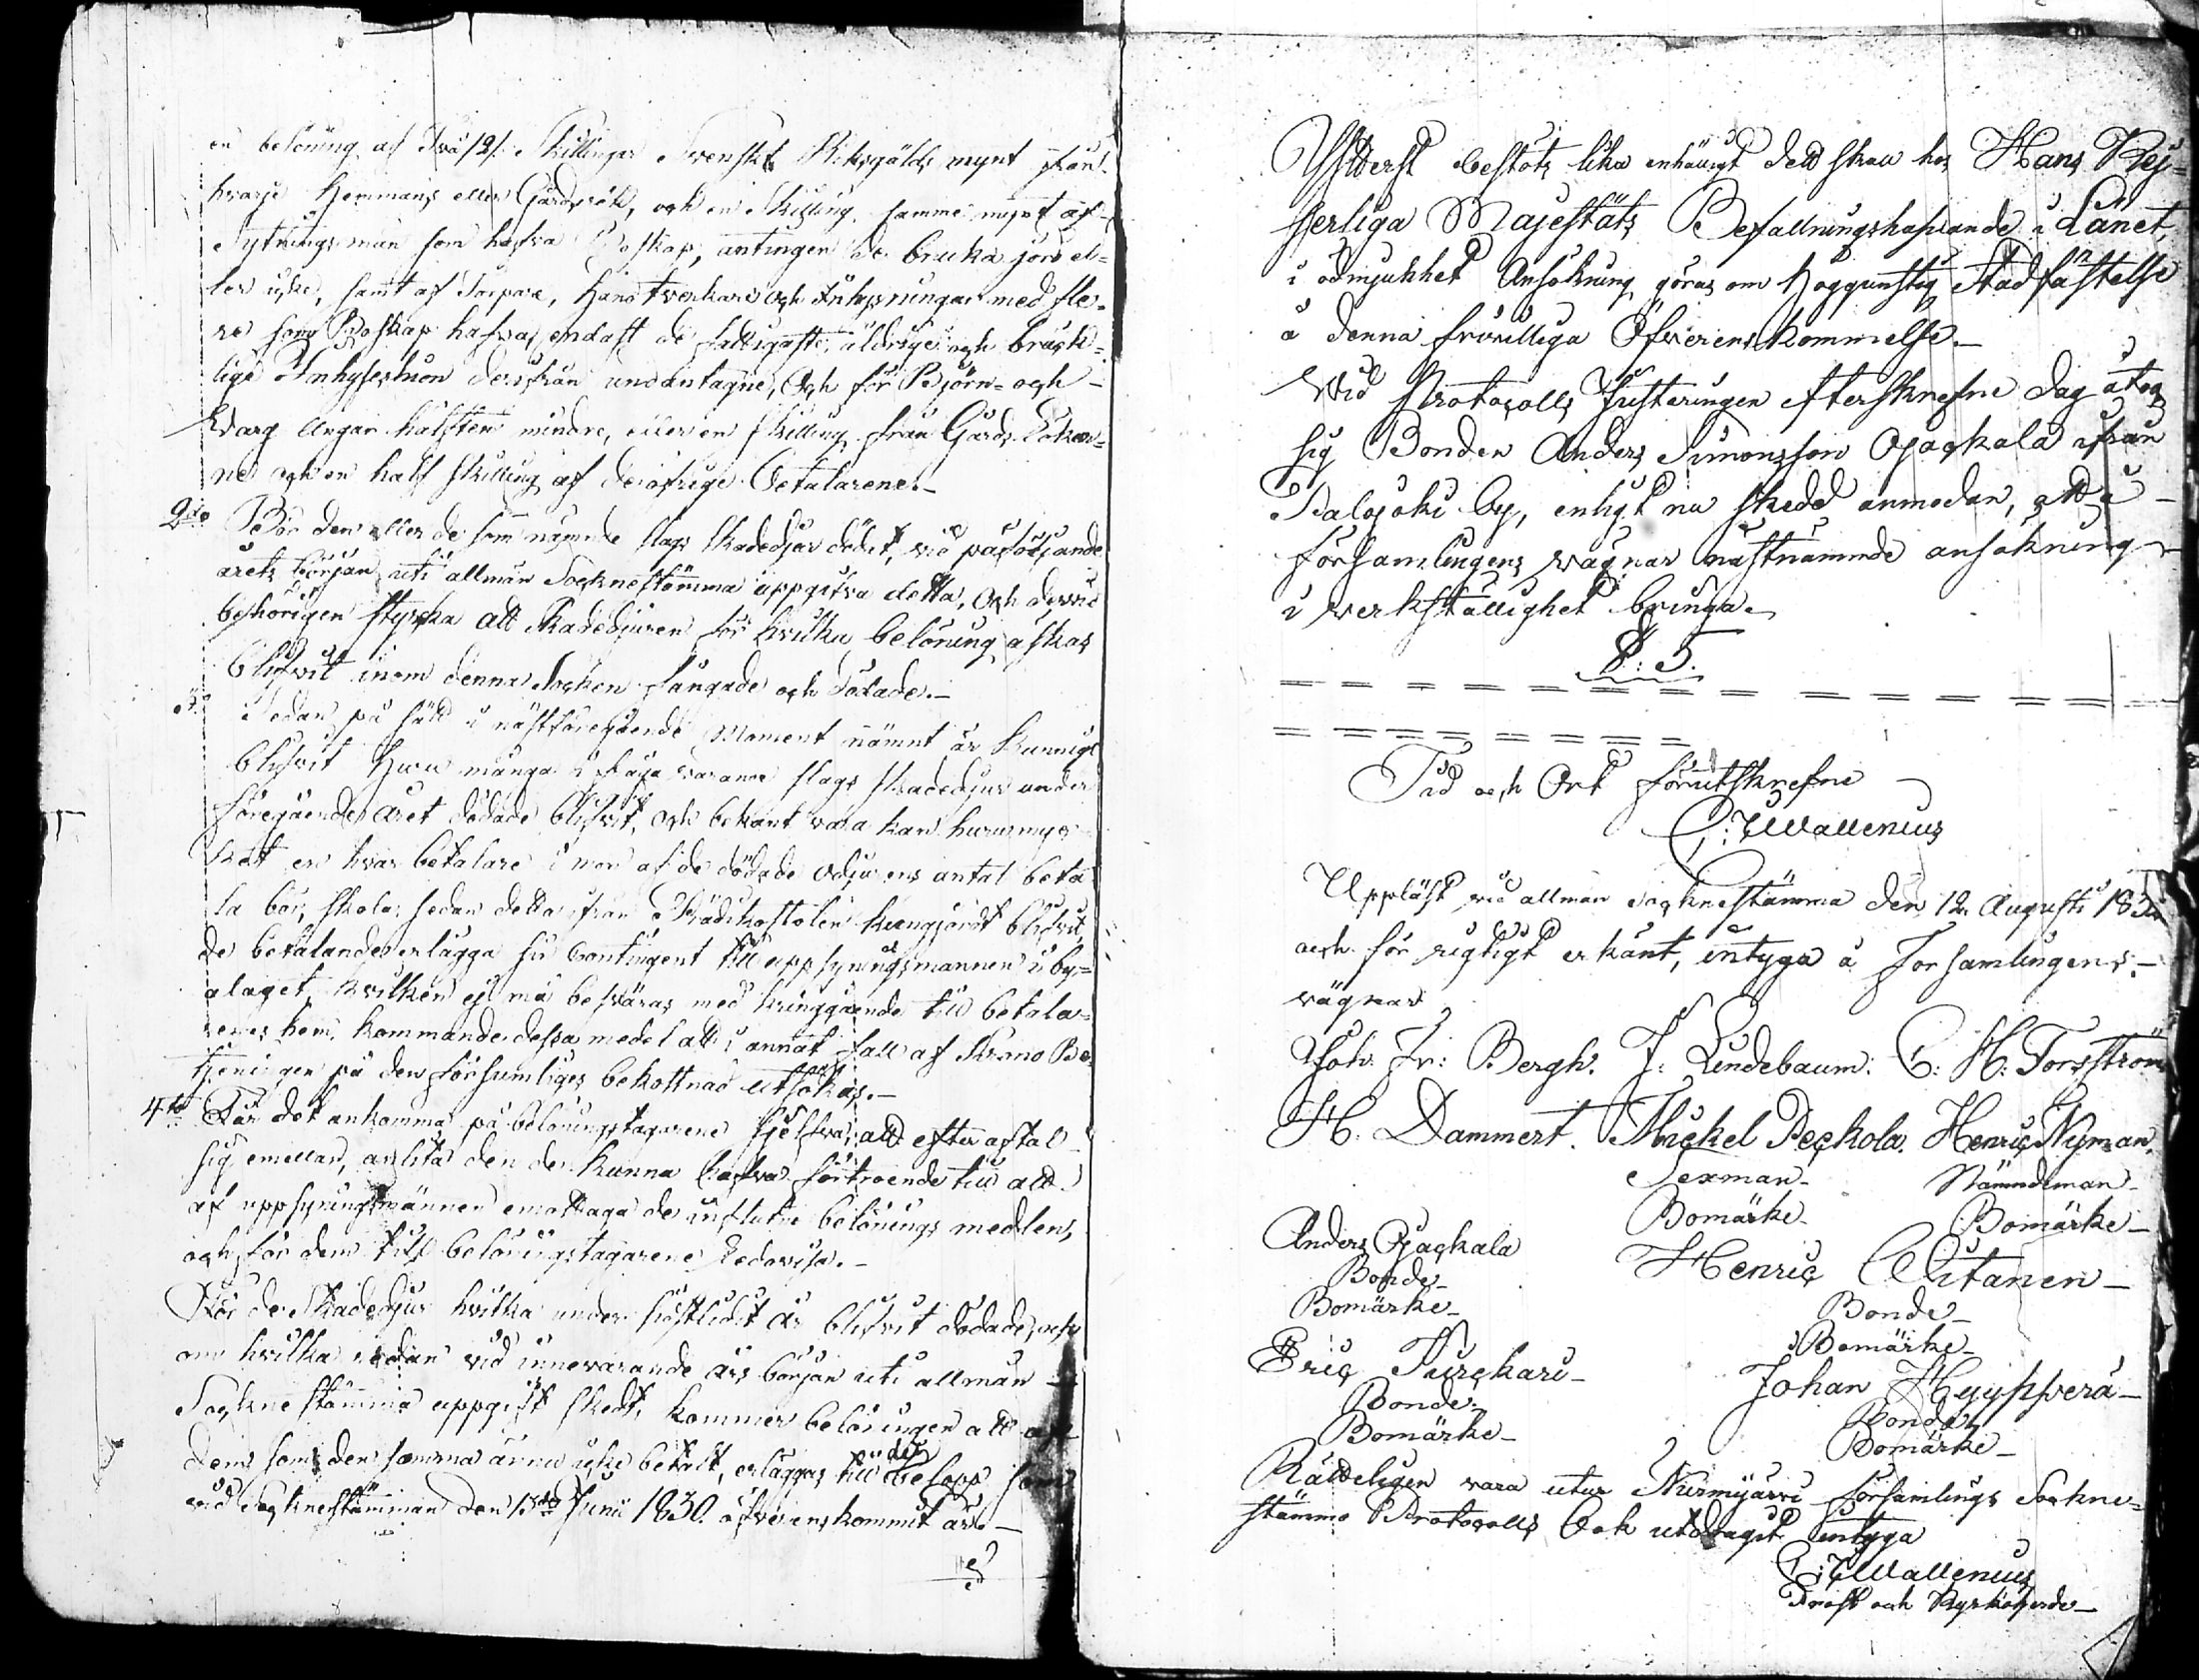 en belöning af Två /2/ Skillingar Svenskt Riksgälds mynt från
hvarje Hemmans eller Gårdsrök, och en Skilling samme mynt af
Sytningsmän som hafva Boskap, antingen de bruka jord el=
ler icke, samt af Torpare, Handtverkare och Inhysningar med fle=
re som Boskap hafva, endast de fattigaste, åldrige och bräck=
lige Inhyseshion derifrån undantagne, Och för Björn= och
Warg Ungar hälften mindre, eller en Skilling från Gårds Rökar=
ne och en half skilling af de öfrige Betalarene._
2do Bör den eller de som nämnde slags Skadedjur dödat, vid påföljande
årets början uti allmän Sockne stämma uppgifva detta, Och dervid
behörigen styrka att Skadedjuren för hvilka belöning äskas
blifvit inom denna Socken fångade och dödade._
3o Sedan på sätt i nästföregående Moment nämnt är kunnigt
blifvit Huru många i fråga varande slags skadedjur under
föregående året dödade blifvit, och bekant vara kan huru myc=
ket en hvar betalare i mon af de dödade odjurens antal beta=
la bör, skola, sedan detta ifrån Prädikostolen kungjordt blifvit,
de betalande erlägga sin Contingent till uppsyningsmannen i by=
alaget, hvilken ej må besväras med kringgående till betala=
renes hem, kommande dessa medel att i annat fall af Krono Be=
tjeningen på den försumliges bekostnad utsökas._
4to Får det ankomma på belöningstagarene sjelfva, att efter aftal
sig emellan, anlita den de kunna hafva förtroende till att
af uppsyningsmännen emottaga de influtne belönings medlen,
och för dem till belöningstagarene Redovisa._
För de Skadedjur hvilka under sistledit år blifvit dödade, och
om hvilka redan vid innevarande års början uti allmän
Sockne stämma uppgift skedt, kommer belöningen att af
dem som den samma ännu icke betalt, erläggas till det belopp som
vid Sockne stämman den 13de Junii 1830. öfverens kommit är._
Ytterst beslöts lika enhälligt det skall hos Hans Kej=
serliga Majestäts Befallningshafvande i Länet,
i ödmjukhet Ansökning göras om Höggunstig Stadfästelse
å denna frivilliga Öfverenskommelse._
Wid Protocolls Justeringen efterskrefne dag åtog
sig Bonden Anders Simonsson Ojackala ifrån
Palojoki by, enligt nu skedd anmodan, att å
Församlingens vägnar nästnämnde ansökning
i verkställighet bringa._
§: 5.
Tid och Ort förutskrefne
C: J Wallenius
Uppläst vid allmän Socknestämma den 12 Augusti 183
och för rigtigt erkänt, intyga å Församlingens
vägnar
Joh. Fr: Bergh. J: Lindebaum. C: H: Forsström
H. Dammert. Mickel Peckola. Henric Nyman.
Sexman_ Nämndeman_
Bomärke_ Bomärke_
Anders Ojackala Henric Uitanen_
Bonde_ Bonde_
Bomärke_ Bomärke_
Eric Purckari_ Johan Hyypperä_
Bonde_ Bonde_
Bomärke_ Bomärke_
Rätteligen vara utur Nurmijärvi Församlings Sockne=
stämmo Protocolls Bok utdraget intyga
C: J Wallenius
Prost och Kyrkoherde_